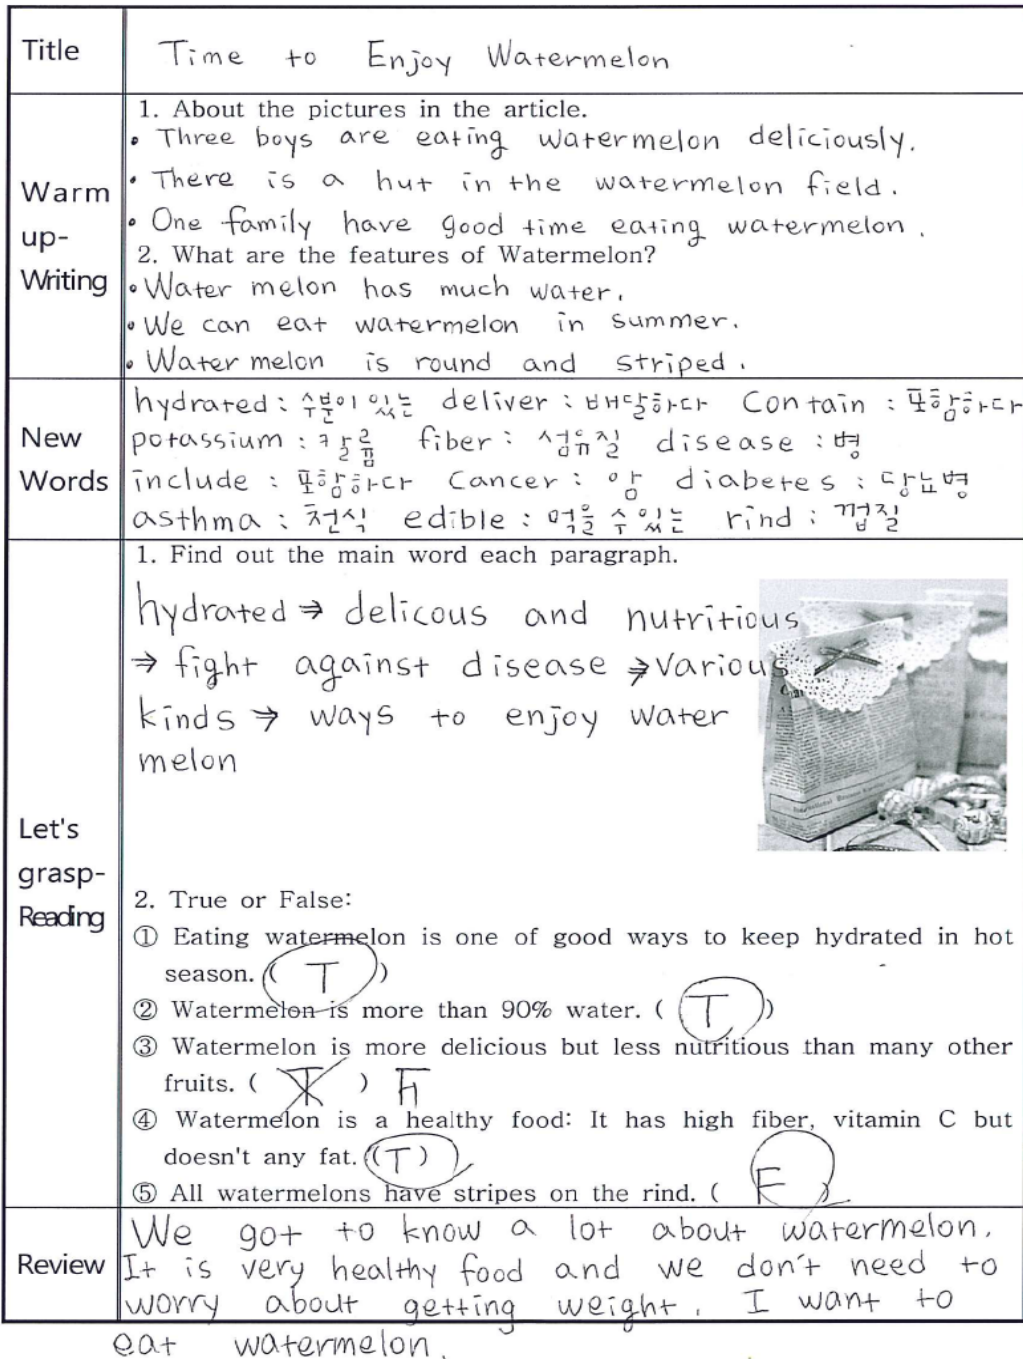 Title
Time to Enjoy Watermelon
Warm
up-
Writing
1. About the pictures in the article.
• Three boys are eating watermelon deliciously.
• There is a hut in the watermelon field.
• One family have good time eating watermelon.
2. What are the features of Watermelon?
• Water melon has much water.
• We can eat watermelon in summer.
• Water melon is round and striped.
New
Words
hydrated : 수분이 있는 deliver : 배달하다 Contain : 포함하다
potassium : 칼륨 fiber : 섬유질 disease : 병
include : 포함하다 Cancer : 암 diabetes : 당뇨병
asthma : 천식 edible : 먹을 수 있는 rind : 껍질
Let's
grasp-
Reading
1. Find out the main word each paragraph.
hydrated ⇒ delicous and nutritious
⇒ fight against disease ⇒ various
kinds ⇒ ways to enjoy water
melon
2. True or False:
① Eating watermelon is one of good ways to keep hydrated in hot
season. ( T )
② Watermelon is more than 90% water. ( T )
③ Watermelon is more delicious but less nutritious than many other
fruits. ( T ) F
④ Watermelon is a healthy food: It has high fiber, vitamin C but
doesn't any fat. (T)
⑤ All watermelons have stripes on the rind. ( F )
Review
We got to know a lot about watermelon.
It is very healthy food and we don't need to
worry about getting weight. I want to
eat watermelon.